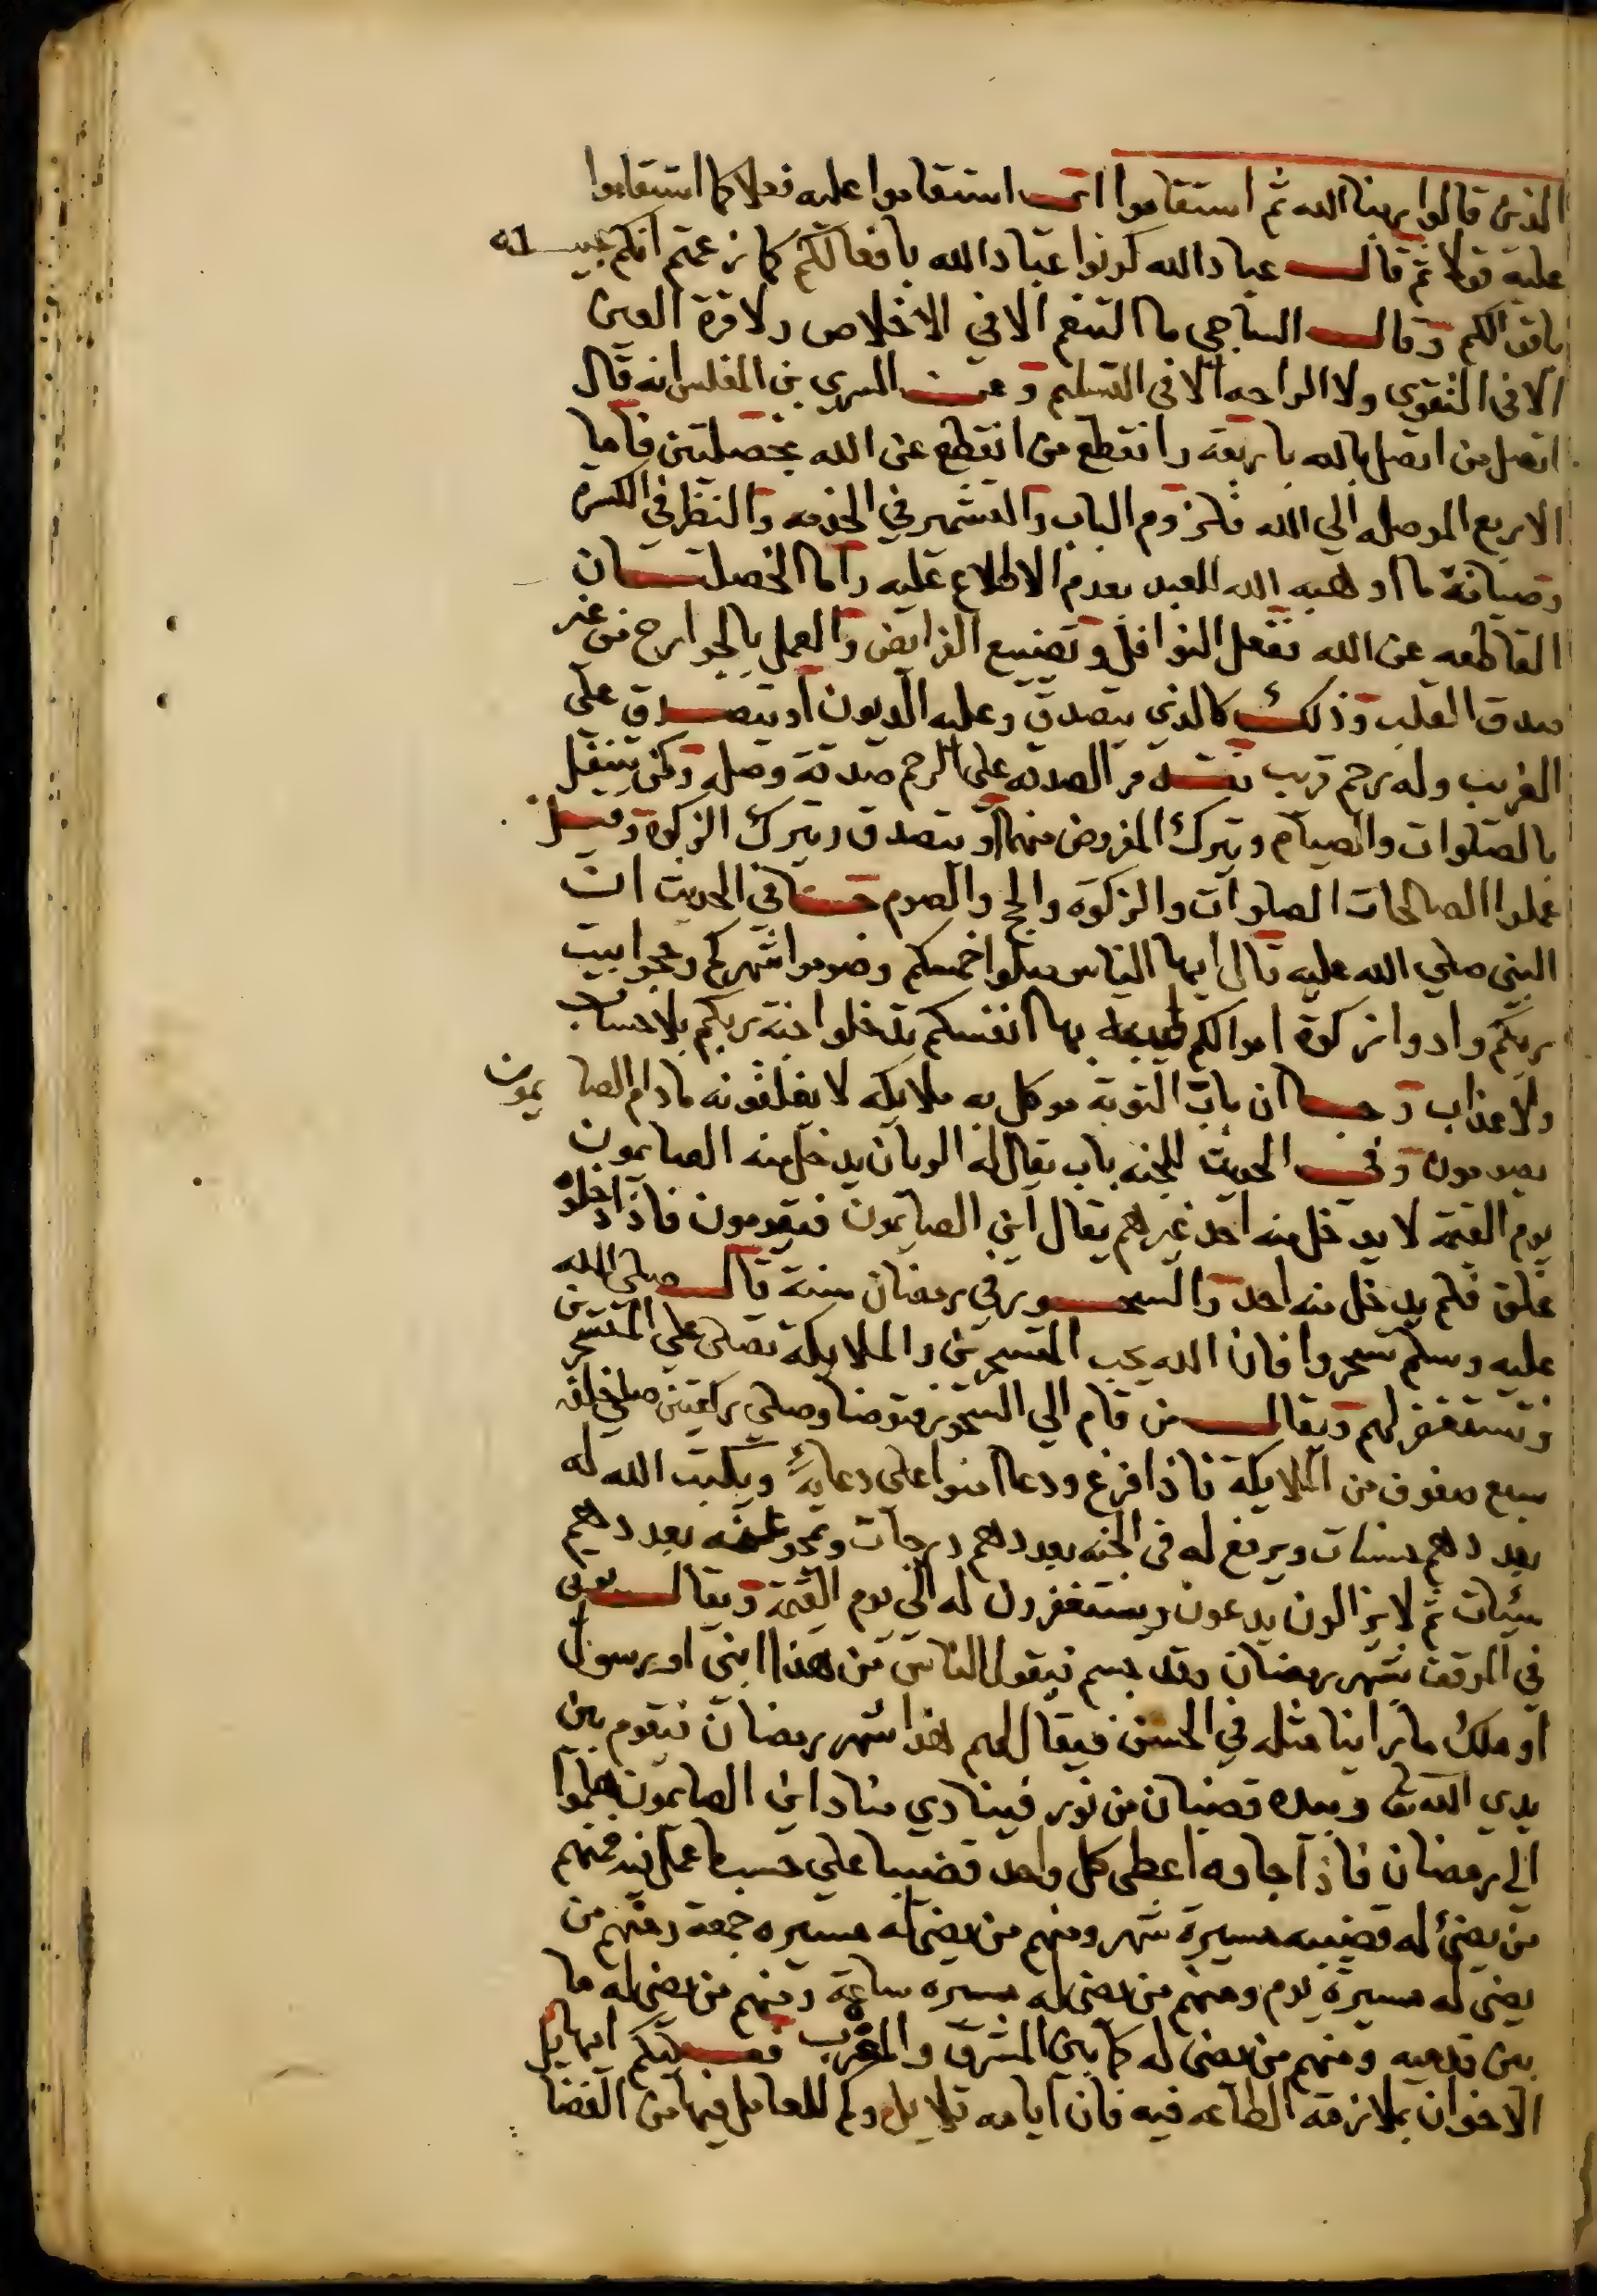 الذين قالوا ربنا الله ثم استقاموا اى استقاموا عليه فعلا كما استقاموا
عليه قولا ثم قال عباد الله كونوا عباد الله بافعالكم كما زعمتم انكم عبيد له
باقوالكم وقال الساجي ما التنعم الا في الاخلاص ولا قرة العين
الا في التقوي ولا الراحه الا في التسليم وعن السري بن المغلس انه قال
اتصل من اتصل بالله باربعة وانقطع من انقطع عن الله بخصلتين فاما
الاربع الموصله الي الله فلزوم الباب والتشمير في الخدمه والنظر في الكسرة
وصيانة ما اوهبه الله للعبد بعدم الاطلاع عليه واما الخصلتان
القاطعه عن الله فعل النوافل وتضييع الفرايض والعمل بالجوارح من غير
صدق القلب وذلك كالذي يتصدق وعليه الديون او يتصدق علي
الغريب وله رحم قريب الصدقه علي الرحم صدقة وصله وكمن يتنفل
بالصلوات والصيام ويترك المفروض منهما او يتصدق ويترك الزكوة وقيل
عملوا الصالحات الصلوات والزكوة والحج والصوم في الحديث ان
النبي صلي الله عليه قال ايها الناس صلوا خمسكم وصوموا شهركم وحجوا بيت
ربكم وادوا زكوة اموالكم طيبة بها انفسكم تدخلوا جنة ربكم بلا حساب
ولا عذاب وجا ان باب التوبة موكل به ملايكه لا يغلقونه ما دام الصايمون
يصومون وفي الحديث للجنه باب يقال له الريان يدخل منه الصايمون
يوم القيمة لا يدخل منه احد غيرهم يقال اين الصايمون فيقومون فاذا دخلوا
غلق فلم يدخل منه احد والسحور في رمضان سنة قال صلي الله
عليه وسلم تسحروا فان الله يحب المتسحرين والملايكة تصلي علي المتسحرين
وتستغفر لهم ويقال من قام الي السحور فتوضا وصلي ركعتين صلي خلفه
سبع صفوف من الملايكة فاذا فرغ ودعا امنوا علي دعايه ويكتب الله له
بعددهم حسنات ويرفع له في الجنه بعددهم درجات وتمحو عنه بعددهم
سيئات ثم لا يزالون يدعون ويستغفرون له الي يوم القيمة ويقال يوتى
في الموقف بشهر رمضان وقد جسم فيقول الناس من هذا انبي او رسول
او ملك ما راينا مثله في الحسن فيقال لهم هذا شهر رمضان فيقوم بين
يدي الله تعا وبيده قضبان من نور فينادي مناد اين الصايمون هلموا
الى رمضان فاذا جاوه اعطى كل واحد قضيبا علي حسب ما عمل فيه فمنهم
من يضئ له قضيبه مسيرة شهر ومنهم من يضى له مسيره جمعة ومنهم من
يضى له مسيرة يوم ومنهم من يضى له مسيره ساعة ومنهم من يضى له ما
بين قدميه ومنهم من يضى له كما بين المشرق والمغرب فعليكم ايها
الاخوان بملازمة الطاعه فيه فان ايامه قلايل وكم للعامل فيها من الفضا